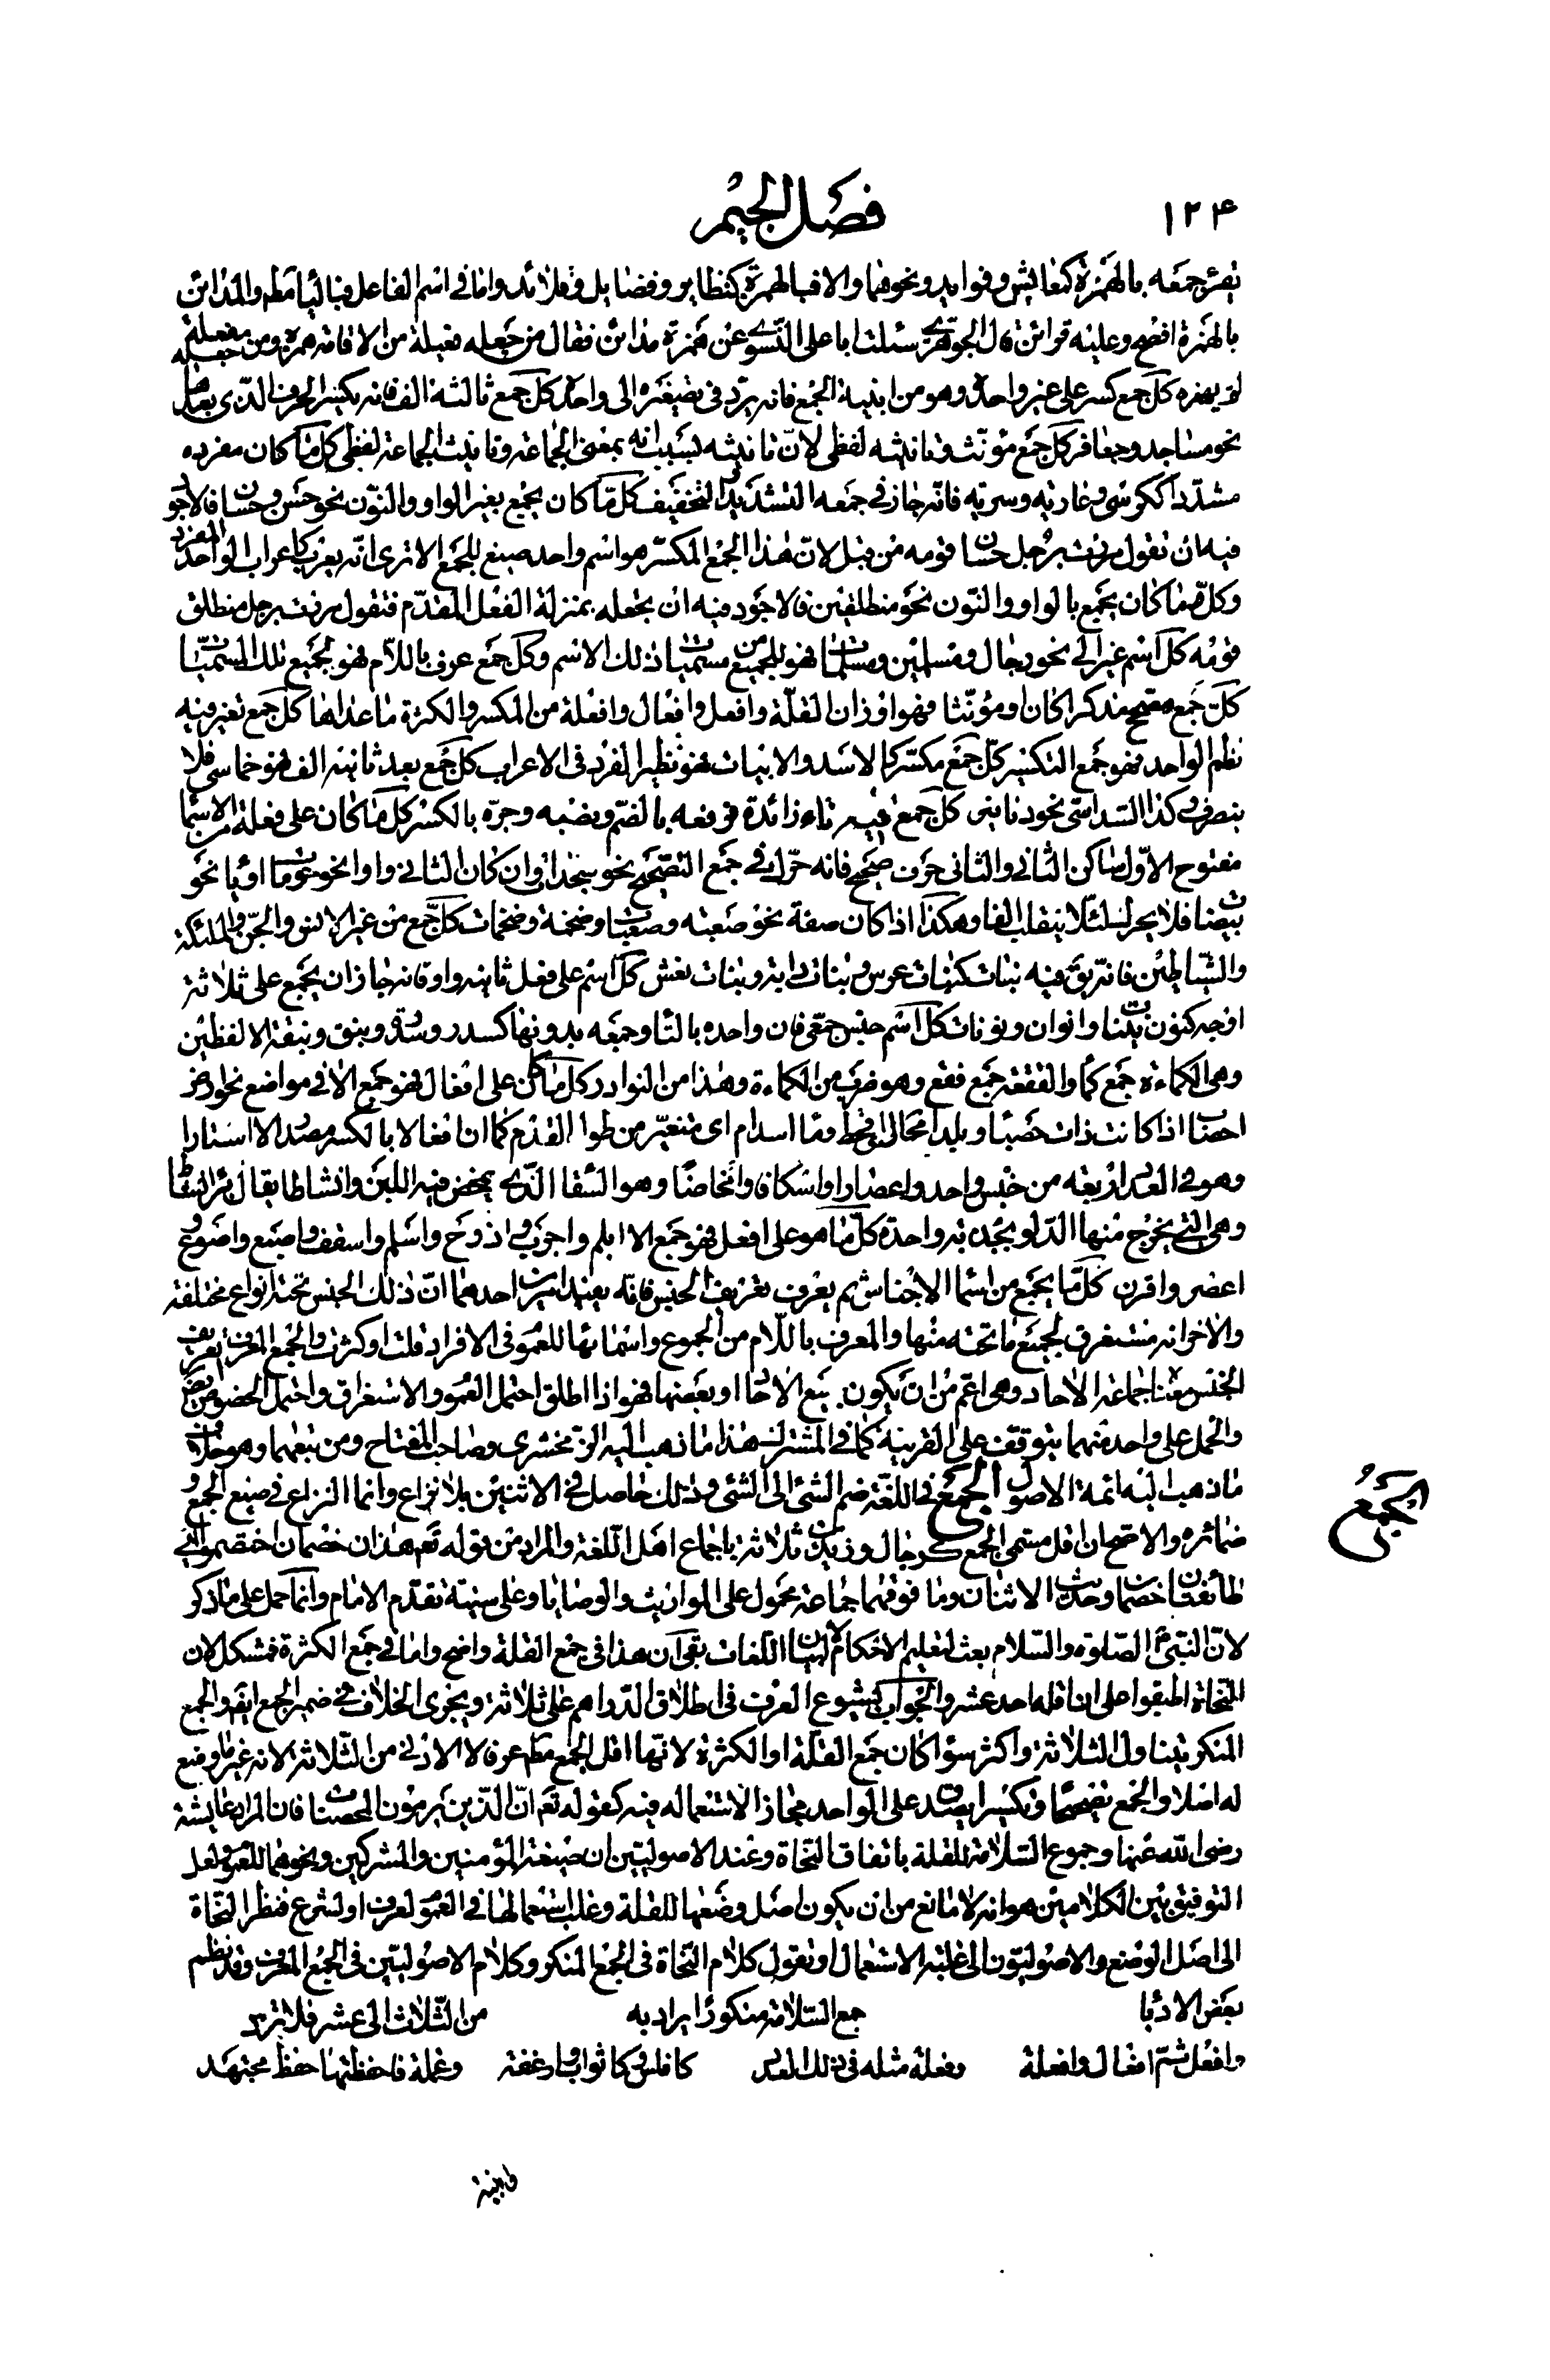 ١٢٤
فصل الجيم
بالهمزة افصح وعليه قوائن قال الجوهرى سئلت ابا على النسوى عن همزة مدائن فقال من جعله فعيلة من الاقامة همزه ومن جعله مفعلة
لم يهمزه كل جمع كسر على غير واحده وهو من ابنية الجمع فانه يرد فى تصغيره الى واحده كل جمع ثالثه الف فانه يكسر الحرف الذى بعدها
نحو مساجد وجعافر كل جمع مؤنث وتانيثه لفظى لان تانيثه بسبب انه بمعنى الجماعة وتانيث الجماعة لفظى كل ما كان مفرده
مشددا ككرسى وعارية وسرية فانه جاز فى جمعه التشديد والتخفيف كل ما كان يجمع بغير الواو والنون نحو حسن وحسان فالاجود
فيه ان تقول مررت برجل حسان قومه من قبل لان هذا الجمع المكسر هو اسم واحد صيغ للجمع الا ترى انه يعرب كاعراب الواحد المفرد
وكل ما كان يجمع بالواو والنون نحو منطلقين فالاجود فيه ان تجعله بمنزلة الفعل المقدم فتقول مررت برجل منطلق
قومه كل اسم غير الى نحو رجال ومسلمين ومسلمات فهو للجميع من مسميات ذلك الاسم وكل جمع عرف باللام فهو لجميع تلك المسميات
كل جمع مصحح مذكرا كان او مؤنثا فهو اوزان القلة وافعل وافعال وافعلة من المكسر والكثرة ما عداها كل جمع تغير فيه
نظم الواحد فهو جمع التكسير كل جمع مكسر كالاسد والابيات فهو نظير الفرد فى الاعراب كل جمع بعد ثانيه الف فهو خماسى فلا
ينصرف وكذا السداسى نحو دنانير كل جمع فيه تاء زائدة فرفعه بالضم ونصبه وجره بالكسر كل ما كان على فعلة من الاسما
مفتوح الاول ساكن الثانى والثانى حرف صحيح فانه حرك فى جمع التصحيح نحو سجدات وان كان الثانى واوا نحو حومات او يا نحو
بيضات فلا يحرك لئلا ينقلب الفا وهكذا اذا كان صفة نحو صعبة وصعبات وضخمة وضخمات كل جمع من غير الانس والجن والملئكة
والشياطين فانه يق فيه بنات كبنات عرس وبنات داية وبنات نعش كل اسم على فعل ثانيه واو فانه جاز ان يجمع على ثلاثة
اوجه كنون نينات وانوان ونونات كل اسم جنس جمعى فان واحده بالتاء وجمعه بدونها كسدر وسدرة ونبق ونبقة الا لفظين
وهى الكماءة جمع كما والفقعة جمع فقع وهو ضرب من الكماءة وهذا من النوادر كل ما كان على افعال فهو جمع الا فى مواضع نحو ارض
احصاب اذا كانت ذات حصبا وبلد امحال اى قحط وما اسدام اى متغير من طول القدم كما ان فعالا بالكسر مصدر الا استارا
وهو فى العدد اربعة من جنس واحد واعصارا واسكافا وانخاضا وهو السقا الذى يمخض فيه اللبن وانشاطا يقال بئر انشاط
وهى التى يخرج منها الدلو بجذبة واحدة كل ما هو على افعل فهو جمع الا ابلم واجرب واذرح واسلم واسقف واصبع واصوع
اعصر واقرن كل ما يجمع من اسما الاجناس ثم يعرف تعريف الجنس فانه يفيد امرين احدهما ان ذلك الجنس تحته انواع مختلفة
والاخر انه مستغرق لجميع ما تحته منها والمعرف باللام من الجموع واسمائها للعموم فى الافراد قلت او كثرت والجمع المعرف تعريف
الجنس معناه جماعة الاحاد وهى اعم من ان يكون جميع الاحاد او بعضها فهو اذا اطلق احتمل العموم والاستغراق واحتمل الخصوص
والحمل على واحد منهما يتوقف على القرينة كما فى المشترك هذا ما ذهب اليه الزمخشرى وصاحب المفتاح ومن تبعهما وهو خلاف
ما ذهب اليه ائمة الاصول الجمع فى اللغة ضم الشئ الى الشئ وذلك حاصل فى الاثنين بلا نزاع وانما النزاع فى صيغ الجمع و
ضمائره والاصح ان اقل مسمى الجمع كرجال وزيدين ثلاثة باجماع اهل اللغة والمراد من قوله تع هذان خصمان اختصموا
طائفتان خصمان وحديث الاثنان وما فوقهما جماعة محمول على المواريث والوصايا وعلى سنية تقدم الامام وانما حمل على ما ذكر
لان النبى ع الصلوة والسلام بعث لتعليم الاحكام لا لبيان اللغات بقى ان هذا فى جمع القلة واضح واما فى جمع الكثرة فمشكل لان
النحاة اطبقوا على ان اقله احد عشر والجواب بشيوع العرف فى اطلاق الدراهم على ثلاثة ويجرى الخلاف فى ضمير الجمع ايضا والجمع
المنكر يتناول الثلاثة واكثر سواء كان جمع القلة او الكثرة لانها اقل الجمع مطم عرفا لا الادنى من الثلاثة لانه غير ما وضع
له اصلا والجمع تصحيحا وتكسيرا يصدق على الواحد مجازا لاستعماله فيه كقوله تع ان الذين يرمون المحصنات فان المراد عايشة
رضى الله عنها وجموع السلامة للقلة باتفاق النحاة وعند الاصوليين ان صيغة المؤمنين والمشركين ونحوهما للعموم ولعل
التوفيق بين الكلامين هو انه لا مانع من ان يكون اصل وضعها للقلة وغلب استعمالها فى العموم لعرف او لشرع فنظر النحاة
الى اصل الوضع والاصوليون الى غلبة الاستعمال او نقول كلام النحاة فى الجمع المنكر وكلام الاصوليين فى الجمع المعرف وقد نظم
بعض الادبا جمع السلامة منكورا يراد به من الثلاث الى عشر فلا تزد
وافعل ثم افعال وافعلة وفعلة مثله فى ذلك العدد كافلس وكاثواب وارغفة وغلمة فاحفظنها حفظ مجتهد
الجمع